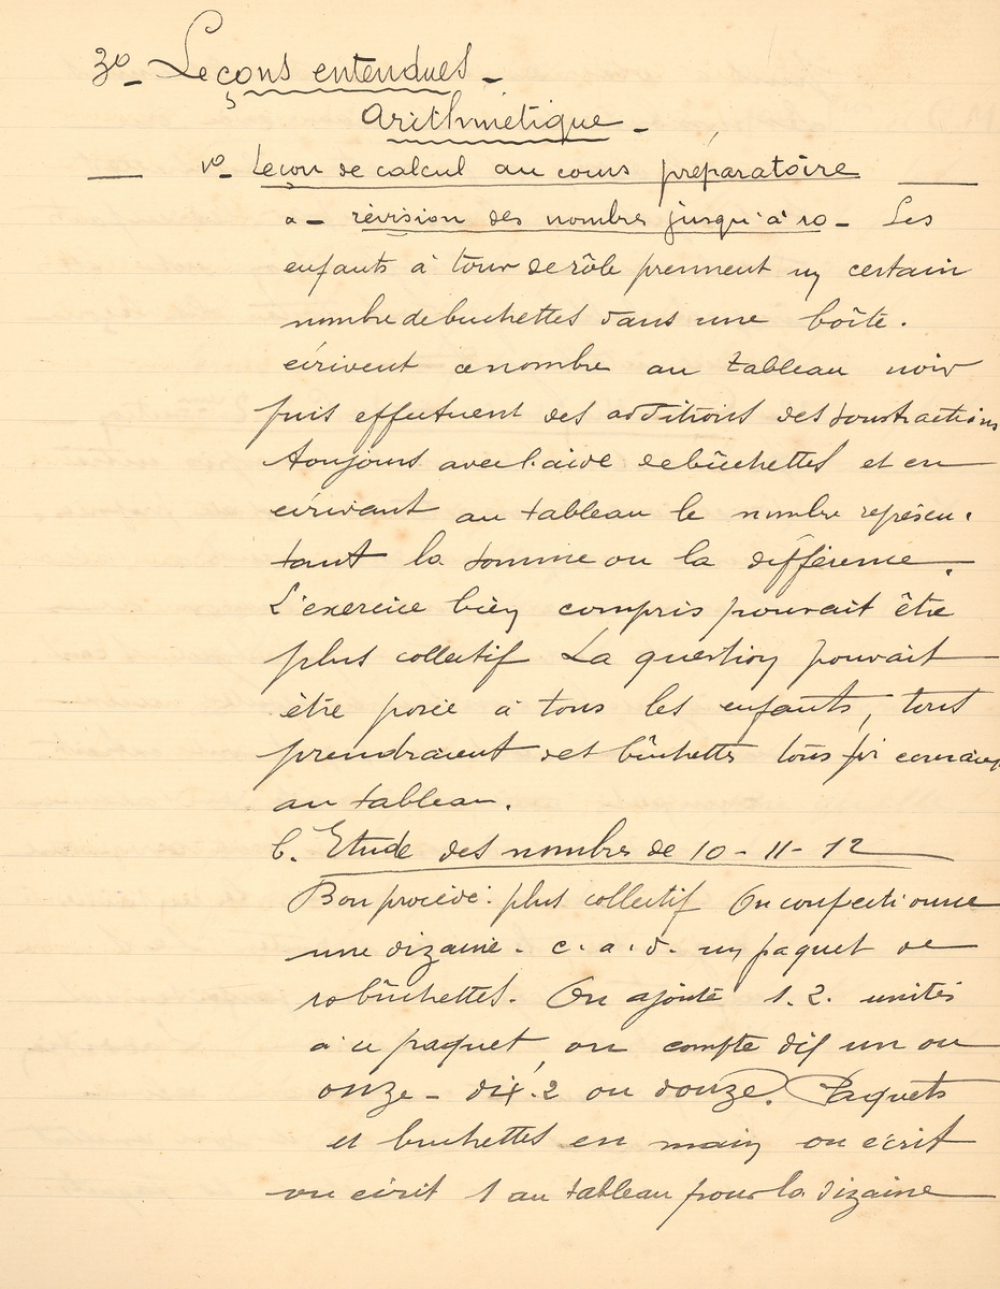 3º_ Leçons entendues _
Arithmétique _
1º_ Leçon de calcul au cours préparatoire
a _ révision des nombres jusqu'à 10 _ Les
enfants à tour de rôle prennent un certain
nombre de buchettes dans une boîte.
écrivent ce nombre au tableau noir
puis effectuent des additions des soustractions
toujours avec l'aide de bûchettes et en
écrivant au tableau le nombre représen-
tant la somme ou la différence.
L'exercice bien compris pouvait être
plus collectif La question pouvait
être posée à tous les enfants, tous
prendraient des bûchettes tous
au tableau.
b. Etude des nombres de 10 - 11 - 12
Bon procédé : plus collectif On confectionne
une dizaine - c. a. d. un paquet de
10 bûchettes. On ajoute 1. 2. unités
à ce paquet, on compte dix un ou
onze - dix. 2 ou douze. Paquets
et buchettes en main on écrit
on écrit 1 au tableau pour la dizaine